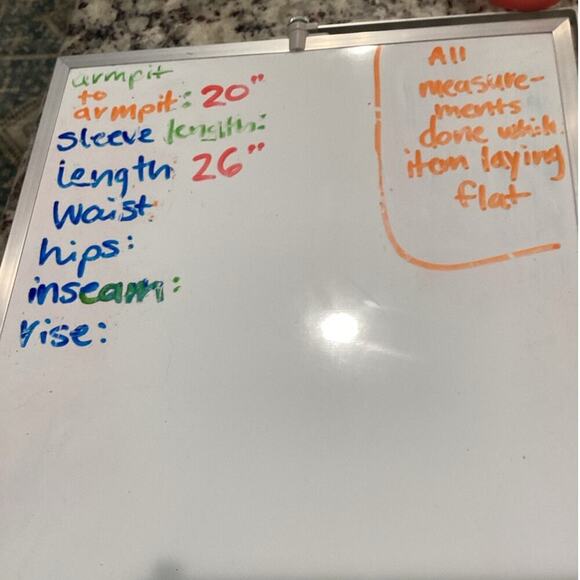 armpit
to
armpit: 20"
sleeve length:
length 26"
Waist
hips:
inseam:
rise:
All
measure-
ments
done which
item laying
flat